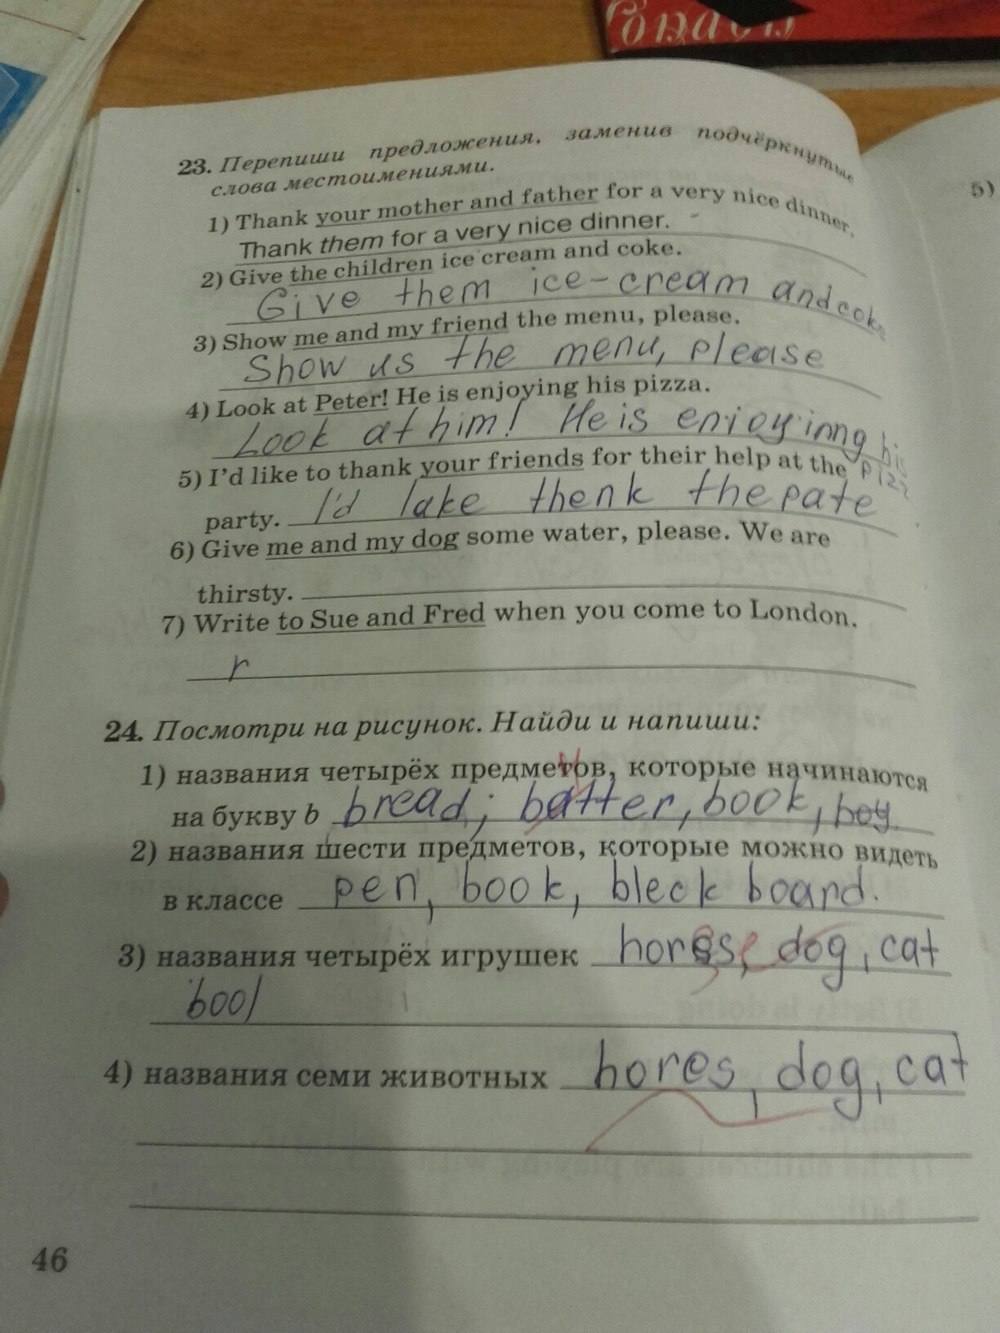 London
23. Перепиши предложения, заменив подчёркнутые
слова местоимениями.
5)
1) Thank your mother and father for a very nice dinner.
Thank them for a very nice dinner.
2) Give the children ice cream and coke.
Give them ice-cream and coke
3) Show me and my friend the menu, please.
Show us the menu, please
4) Look at Peter! He is enjoying his pizza.
Look at him! He is enjoyinng his
pizz
5) I'd like to thank your friends for their help at the
party. I'd lake thenk the pate
6) Give me and my dog some water, please. We are
thirsty.
7) Write to Sue and Fred when you come to London.
r
24. Посмотри на рисунок. Найди и напиши:
1) названия четырёх предметов, которые начинаются
на букву b bread, batter, book, boy.
2) названия шести предметов, которые можно видеть
в классе pen, book, bleck board.
3) названия четырёх игрушек hores, dog, cat
bool
4) названия семи животных hores, dog, cat
46